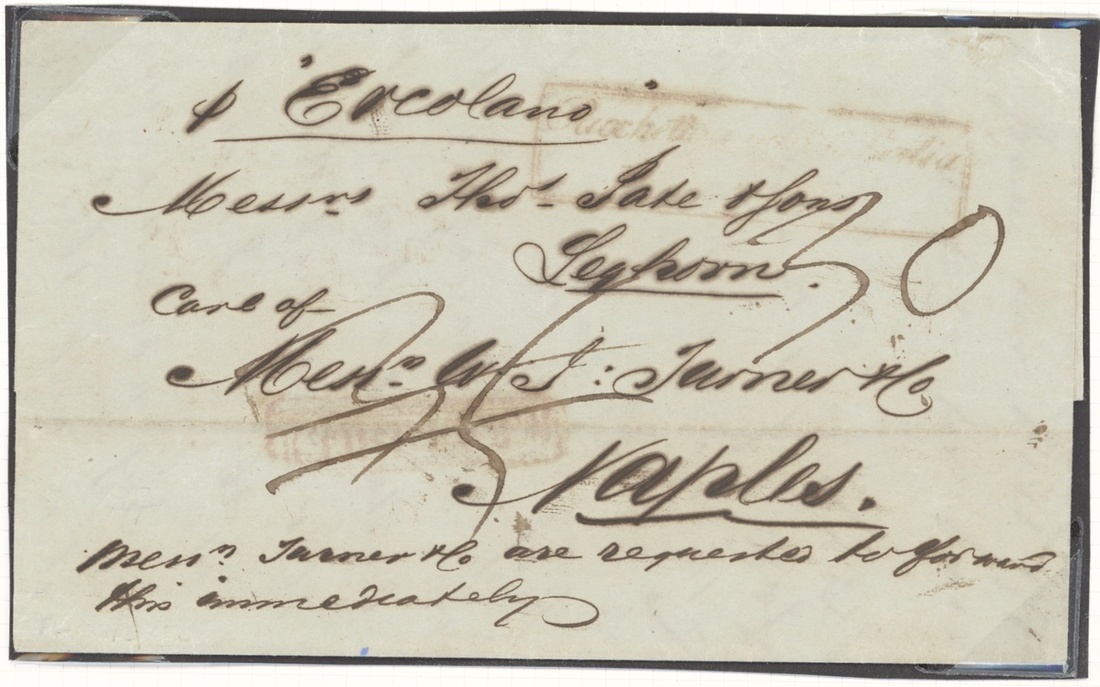 p "Ercolano"
Messrs Thos Pate & Sons
Leghorn.
Care of
Messrs W. J: Turner & Co
Naples.
Messrs Turner & Co are requested to forward
this immediately